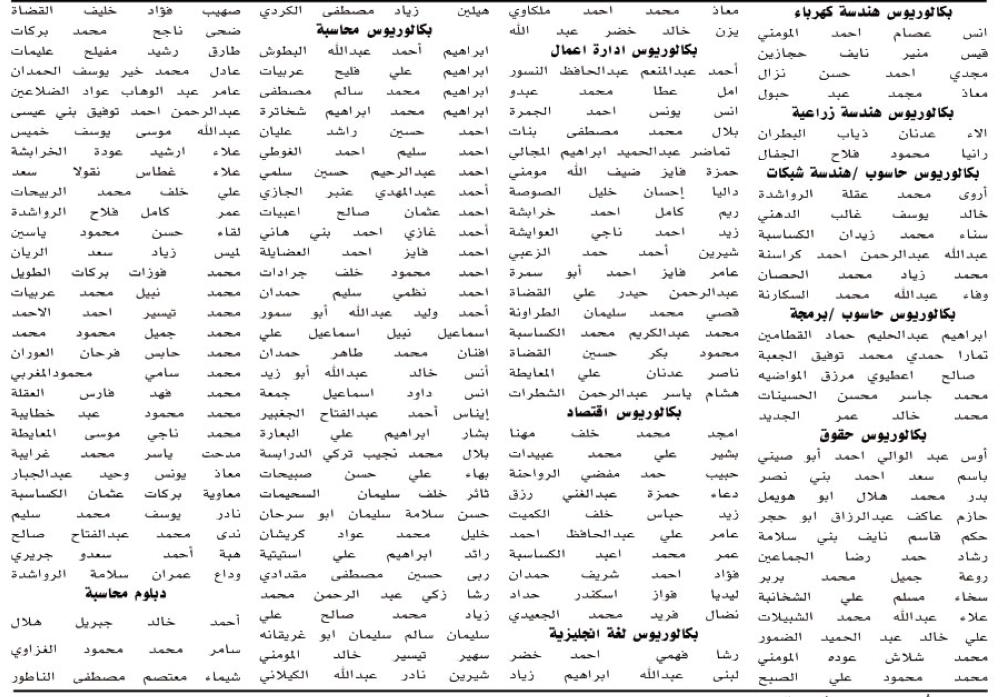 بكالوريوس هندسة كهرباء
انس عصام احمد المومني
قيس منير نايف حجازين
مجدي احمد حسن نزال
معاذ مجمد عبد حبول
بكالوريوس هندسة زراعية
الاء عدنان ذياب البطران
رانيا محمود فلاح الجفال
بكالوريوس حاسوب /هندسة شبكات
أروى محمد عقلة الرواشدة
خالد يوسف غالب الدهني
سناء محمد زيدان الكساسبة
عبدالله عبدالرحمن احمد كراسنة
محمد زياد محمد الحصان
وفاء عبدالله محمد السكارنة
بكالوريوس حاسوب /برمجة
ابراهيم عبدالحليم حماد القطامين
تمارا حمدي محمد توفيق الجعبة
صالح اعطيوي مرزق المواضيه
محمد جاسر محسن الحسينات
محمد خالد عمر الجديد
بكالوريوس حقوق
أوس عبد الوالي احمد أبو صيني
باسم سعد احمد بني نصر
بدر محمد هلال ابو هويمل
حازم عاكف عبدالرزاق ابو حجر
حكم قاسم نايف بني سلامة
رشاد حمد رضا الجماعين
روعة جميل محمد بربر
سخاء مسلم علي الشخانبة
علاء عبدالله محمد الشبيلات
علي خالد عبد الحميد الضمور
محمد شلاش عوده المومني
محمد محمود علي الصبح
معاذ محمد احمد ملكاوي
يزن خالد خضر عبد الله
بكالوريوس ادارة اعمال
أحمد عبدالمنعم عبدالحافظ النسور
امل عطا محمد عبدو
انس يونس احمد الجمرة
بلال محمد مصطفى بنات
تماضر عبدالحميد ابراهيم المجالي
حمزة فايز ضيف الله مومني
داليا إحسان خليل الصوصة
ريم كامل احمد خرابشة
زيد احمد ناجي العوايشة
شيرين أحمد حمد الزعبي
عامر فايز احمد أبو سمرة
عبدالرحمن حيدر علي القضاة
قصي محمد سليمان الطراونة
محمد عبدالكريم محمد الكساسبة
محمود بكر حسين القضاة
ناصر عدنان علي المعايطة
هشام ياسر عبدالرحمن الشطرات
بكالوريوس اقتصاد
امجد محمد خلف مهنا
بشير علي محمد عبيدات
حبيب حمد مفضي الرواحنة
دعاء حمزة عبدالغني رزق
زيد حباس خلف الكميت
عامر علي عبدالحافظ احمد
عمر محمد اعبيد الكساسبة
فؤاد احمد شريف حمدان
ليديا فواز اسكندر حداد
نضال فريد محمد الجعيدي
بكالوريوس لغة انجليزية
رشا فهمي احمد خضر
لبنى عبدالله ابراهيم زياد
هيلين زياد مصطفى الكردي
بكالوريوس محاسبة
ابراهيم أحمد عبدالله البطوش
ابراهيم علي فليح عربيات
ابراهيم محمد سالم مصطفى
ابراهيم محمد ابراهيم شخاترة
احمد حسين راشد عليان
احمد سليم احمد الغوطي
احمد عبدالرحيم حسين سلمي
أحمد عبدالمهدي عنبر الجازي
احمد عثمان صالح اعبيات
أحمد غازي احمد بني هاني
احمد فايز احمد العضايلة
احمد محمود خلف جرادات
احمد نظمي سليم حمدان
أحمد وليد عبدالله أبو سمور
اسماعيل نبيل اسماعيل علي
افنان محمد طاهر حمدان
أنس خالد عبدالله أبو زيد
انس داود اسماعيل جمعة
إيناس أحمد عبدالفتاح الجغبير
بشار ابراهيم علي البعارة
بلال محمد نجيب تركي الدرابسة
بهاء علي حسن صبيحات
ثائر خلف سليمان السحيمات
حسن سلامة سليمان ابو سرحان
خليل محمد عواد كريشان
رائد ابراهيم علي استيتية
ربى حسين مصطفى مقدادي
رشا زكي عبد الرحمن محمد
زياد محمد صالح علي
سليمان سالم سليمان ابو غريقانه
سهير تيسير خالد المومني
شيرين نادر عبدالله الكيلاني
صهيب فؤاد خليف القضاة
ضحى ناجح محمد بركات
طارق رشيد مفيلح عليمات
عادل محمد خير يوسف الحمدان
عامر عبد الوهاب عواد الضلاعين
عبدالرحمن احمد توفيق بني عيسى
عبدالله موسى يوسف خميس
علاء ارشيد عودة الخرابشة
علاء غطاس نقولا سعد
علي خلف محمد الربيحات
عمر كامل فلاح الرواشدة
لقاء حسن محمود ياسين
لميس زياد سعد الريان
محمد فوزات بركات الطويل
محمد نبيل محمد عربيات
محمد تيسير احمد الاحمد
محمد جميل محمود محمد
محمد حابس فرحان العوران
محمد سامي محمودالمغربي
محمد فهد فارس العقلة
محمد محمود عبد خطايبة
محمد ناجي موسى المعايطة
مدحت ياسر محمد غرايبة
معاذ يونس وحيد عبدالجبار
معاوية بركات عثمان الكساسبة
نادر يوسف محمد سليم
ندى محمد عبدالفتاح صالح
هبة أحمد سعدو جريري
وداع عمران سلامة الرواشدة
دبلوم محاسبة
أحمد خالد جبريل هلال
سامر محمد محمود الغزاوي
شيماء معتصم مصطفى الناطور